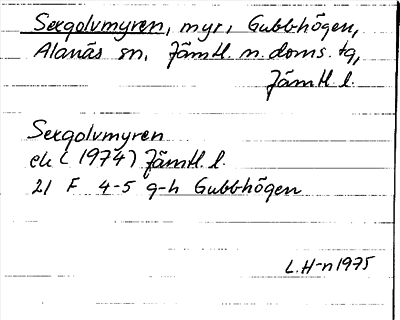 Sexgolvmyren, myr, Gubbhögen,
Alanäs sn, Jämtl. n. doms. tg,
Jämtl. l.
Sexgolvmyren
ek (1974) Jämtl. l.
21 F 4-5 g-h Gubbhögen
L.H-n 1975